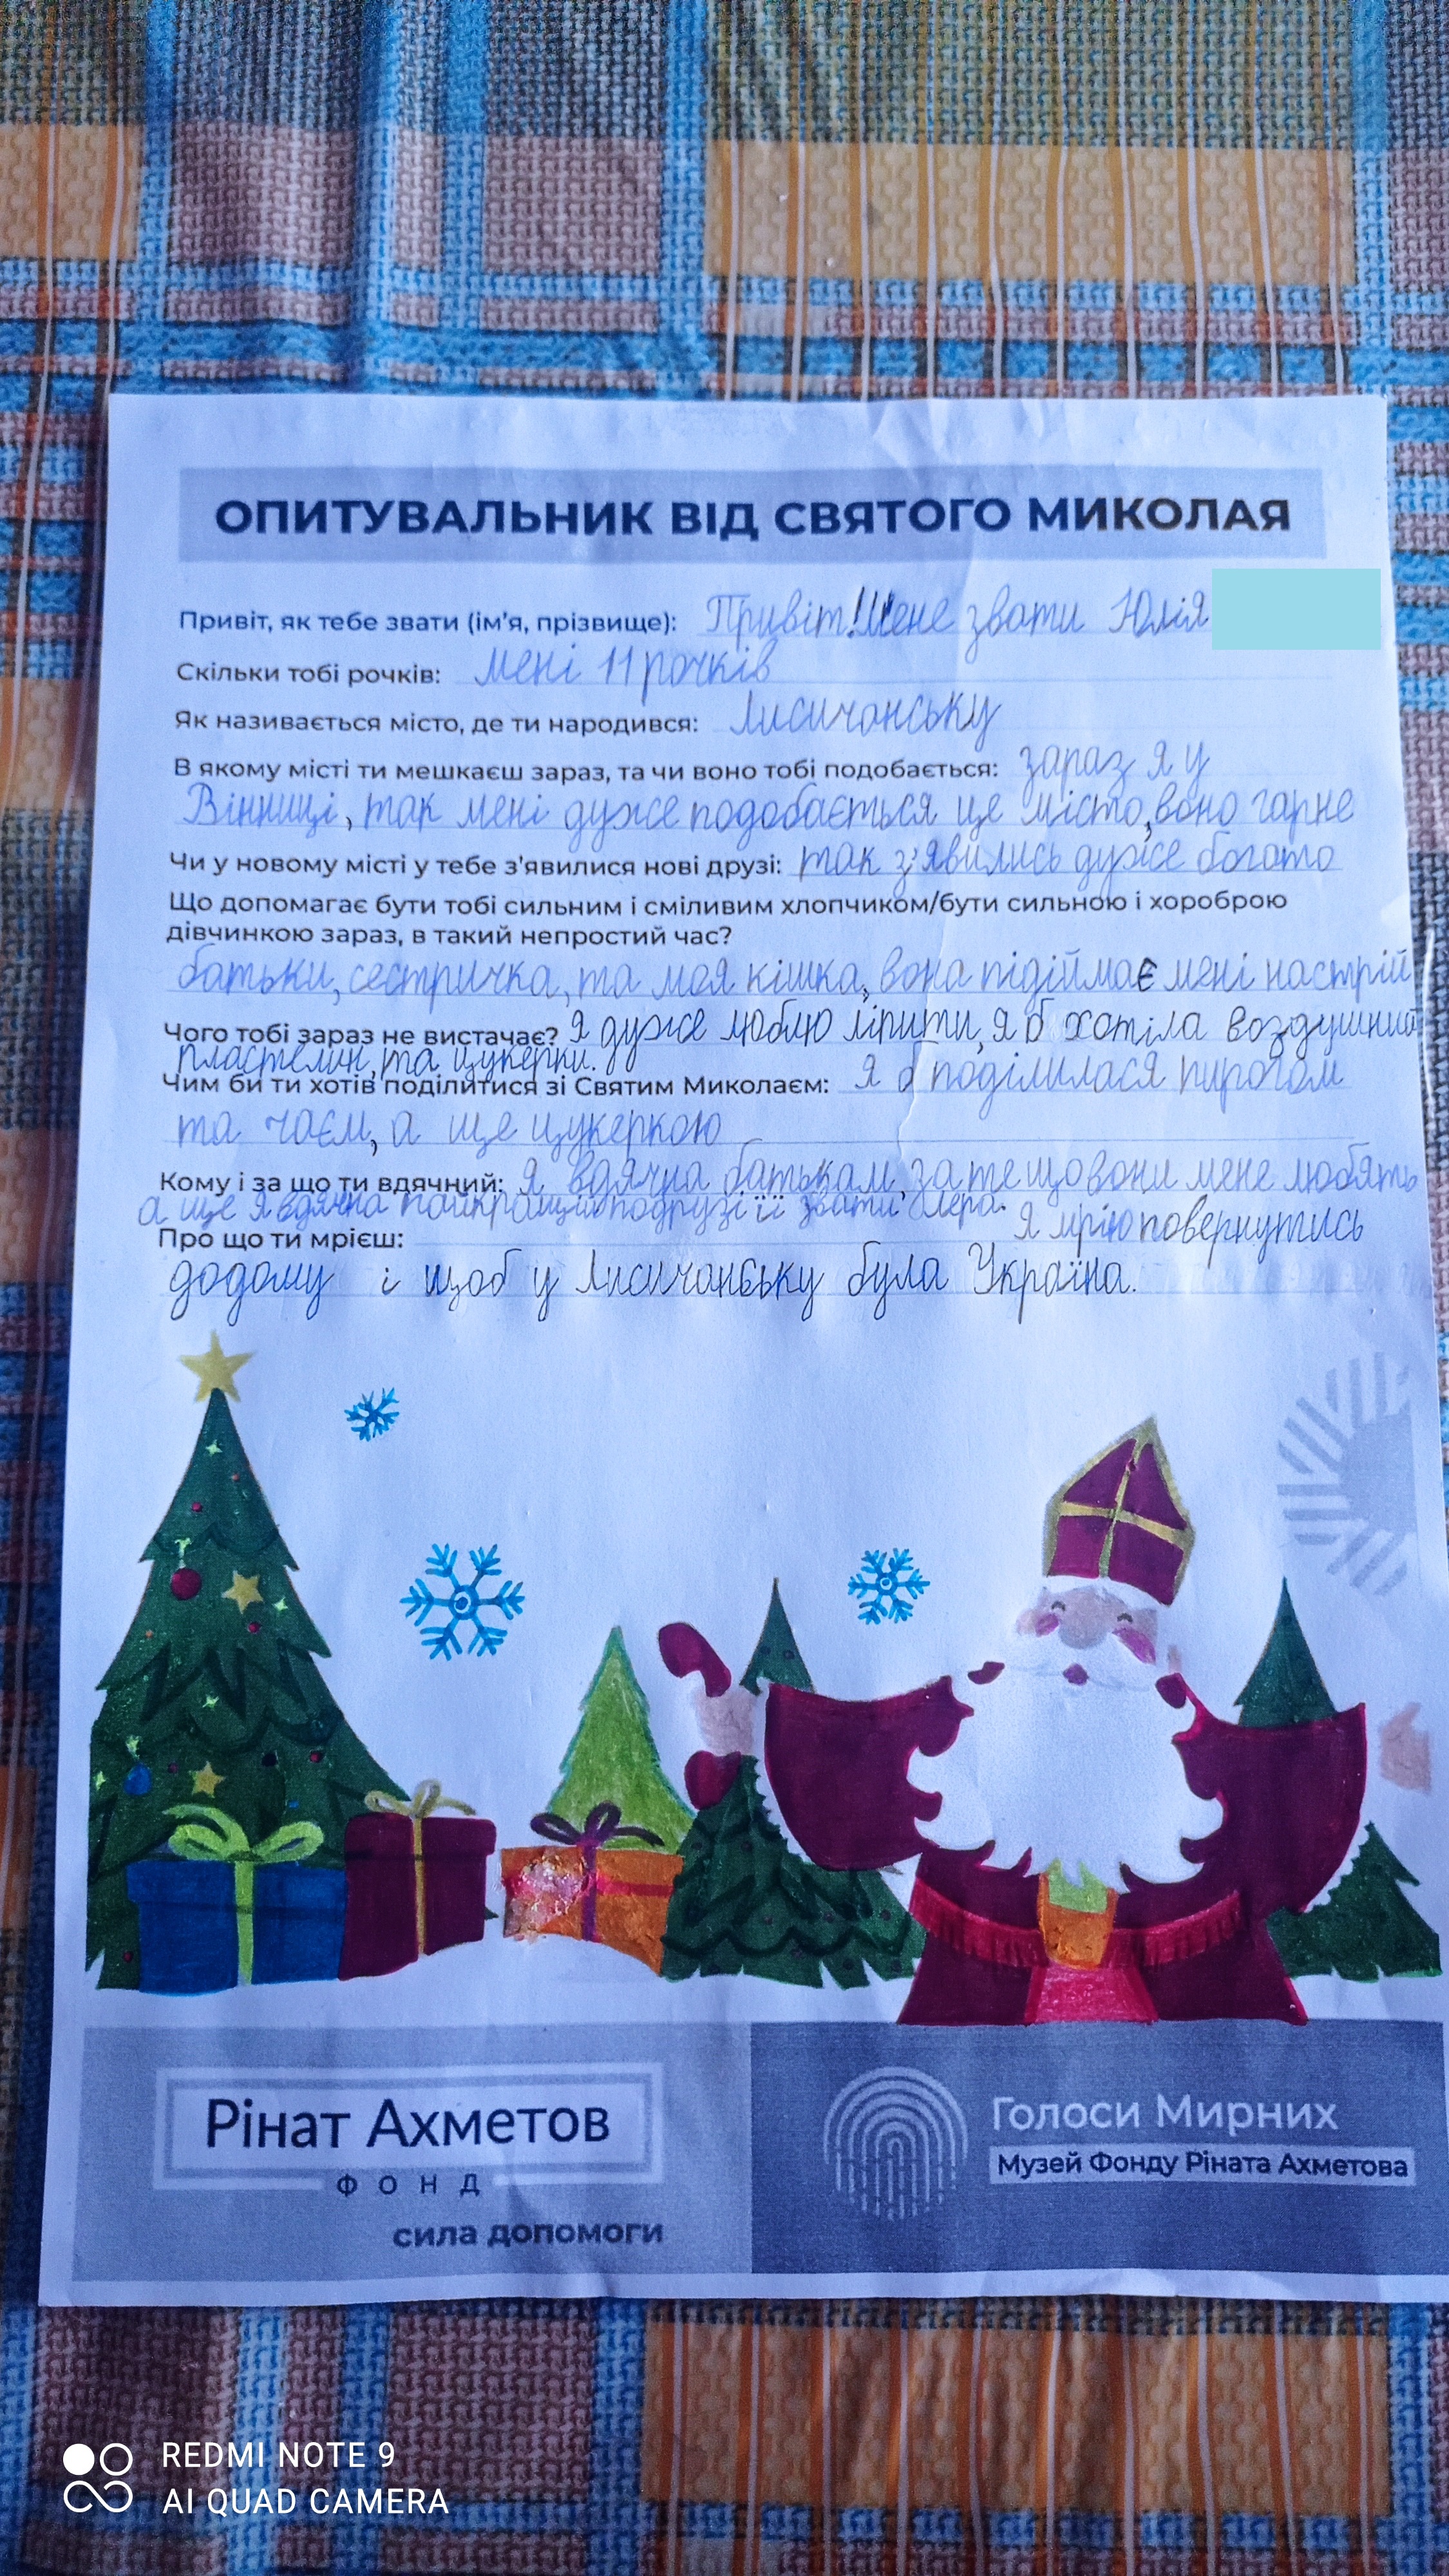 ОПИТУВАЛЬНИК ВІД СВЯТОГО МИКОЛАЯ
Привіт, як тебе звати (ім'я, прізвище): Привіт! Мене звати Юлія
Скільки тобі рочків: мені 11 рочків
Як називається місто, де ти народився: Лисичанську
В якому місті ти мешкаєш зараз, та чи воно тобі подобається: зараз я у
Вінниці, так мені дуже подобається це місто, воно гарне
Чи у новому місті у тебе з'явилися нові друзі: так з'явились дуже богато
Що допомагає бути тобі сильним і сміливим хлопчиком/бути сильною і хороброю
дівчинкою зараз, в такий непростий час?
батьки, сестричка, та моя кішка, вона підіймає мені настрій
Чого тобі зараз не вистачає? я дуже люблю ліпити, я б хотіла воздушний
пластелин, та цукерки.
Чим би ти хотів поділитися зі Святим Миколаєм: я б поділилася пирогом
та чаєм, а ще цукеркою
Кому і за що ти вдячний: я вдячна батькам, за те що вони мене люблять
а ще я вдячна найкращій подрузі її звати Лера.
Про що ти мрієш: я мрію повернутись
додому і щоб у Лисичанську була Україна.
Рінат Ахметов
ФОНД
сила допомоги
Голоси Мирних
Музей Фонду Ріната Ахметова
REDMI NOTE 9
AI QUAD CAMERA